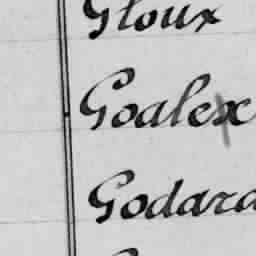 Gloux
Goalex
Godard